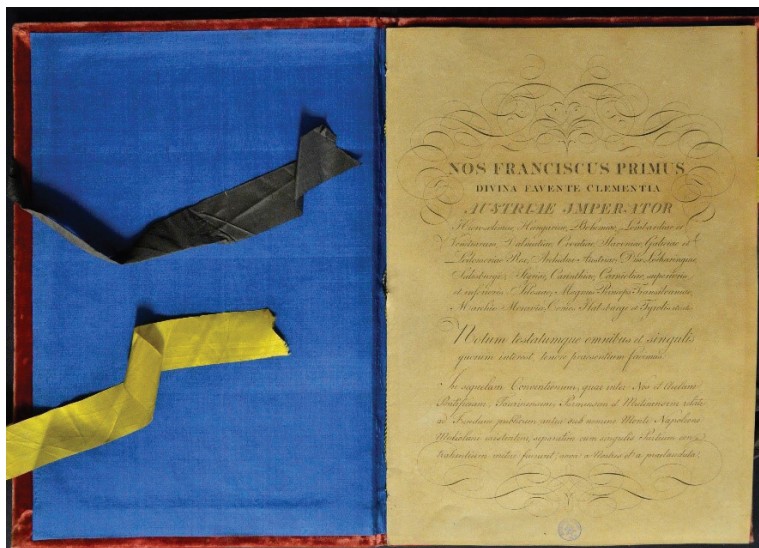 NOS FRANCISCUS PRIMUS
DIVINA FAVENTE CLEMENTIA
AUSTRIAE IMPERATOR
Hierosolimae, Hungariae, Bohemiae, Lombardiae et
Venetiarum, Dalmatiae, Croatiae, Slavoniae, Galiciae et
Lodomeriae Rex, Archidux Austriae, Dux Lotharingiae,
Salisburgi, Styriae, Carinthiae, Carnioliae, superioris
et inferioris Silesiae, Magnus Princeps Transilvaniae,
Marchio Moraviae, Comes Habsburgi et Tyrolis
Notum testatumque omnibus et singulis
quorum interest, tenore praesentium facimus
In sequelam Conventionum, quae inter Nos et Aulam
Pontificiam, Taurinensem, Parmensem et Mutinensem
ad Fundum publicum antea sub nomine Monte Napoleone
Mediolani existentem, separatim cum singulis Partium
initae fuerunt